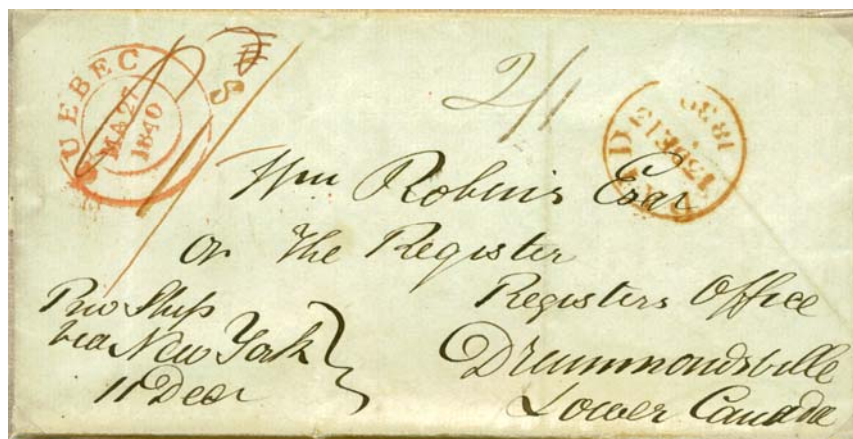 QUEBEC
MA 27
1840
2/1
PAID
13 DE 13
1839
Wm Robins Esqr
or The Register
Registers Office
Drummondsville
Lower Canada
Pr Ship
via New York
11 Decr